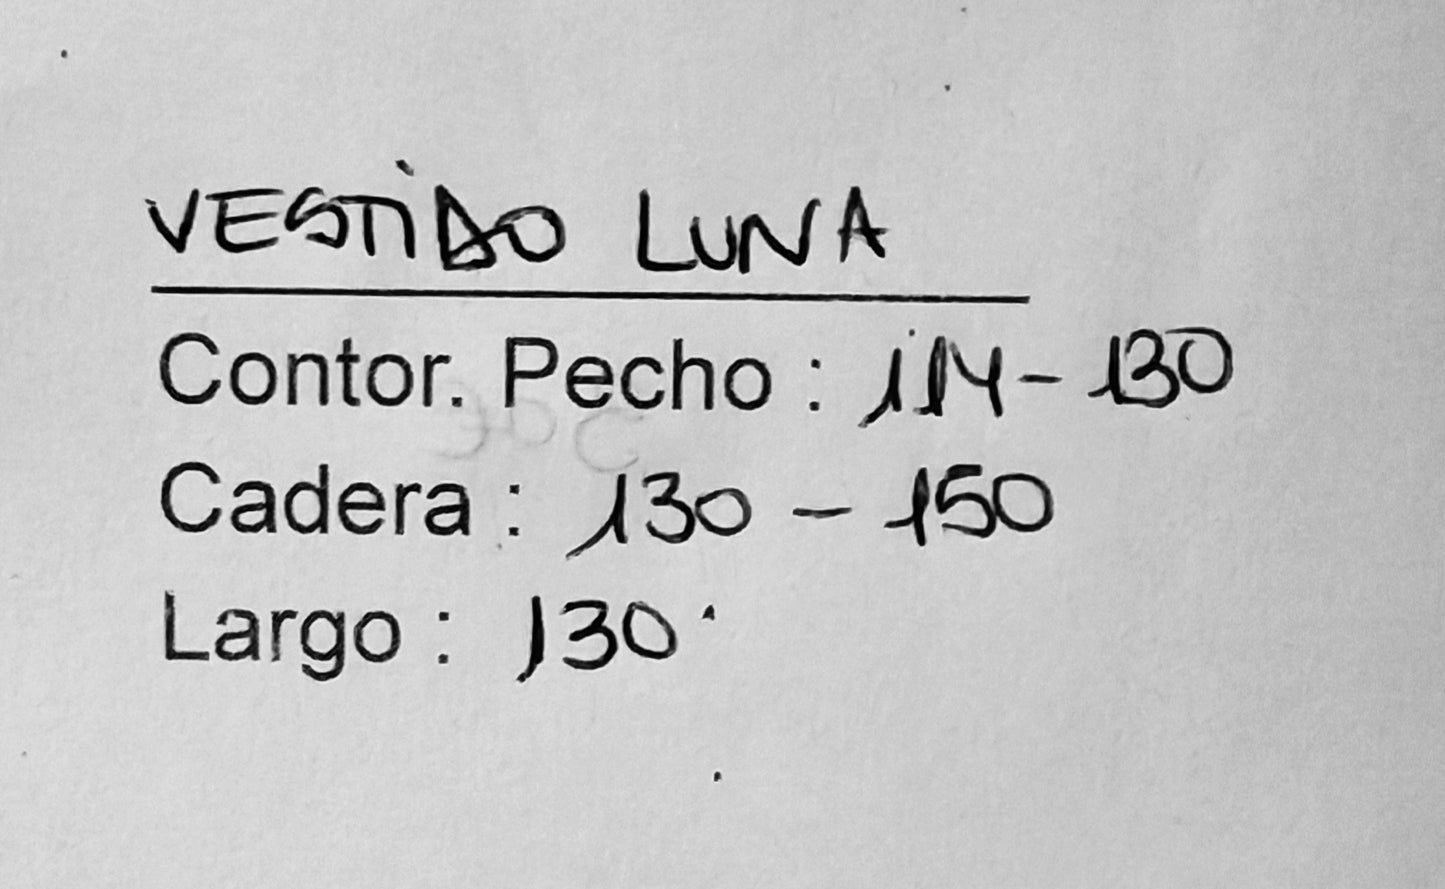 VESTIDO LUNA
Contor. Pecho : 114 - 130
Cadera : 130 - 150
Largo : 130